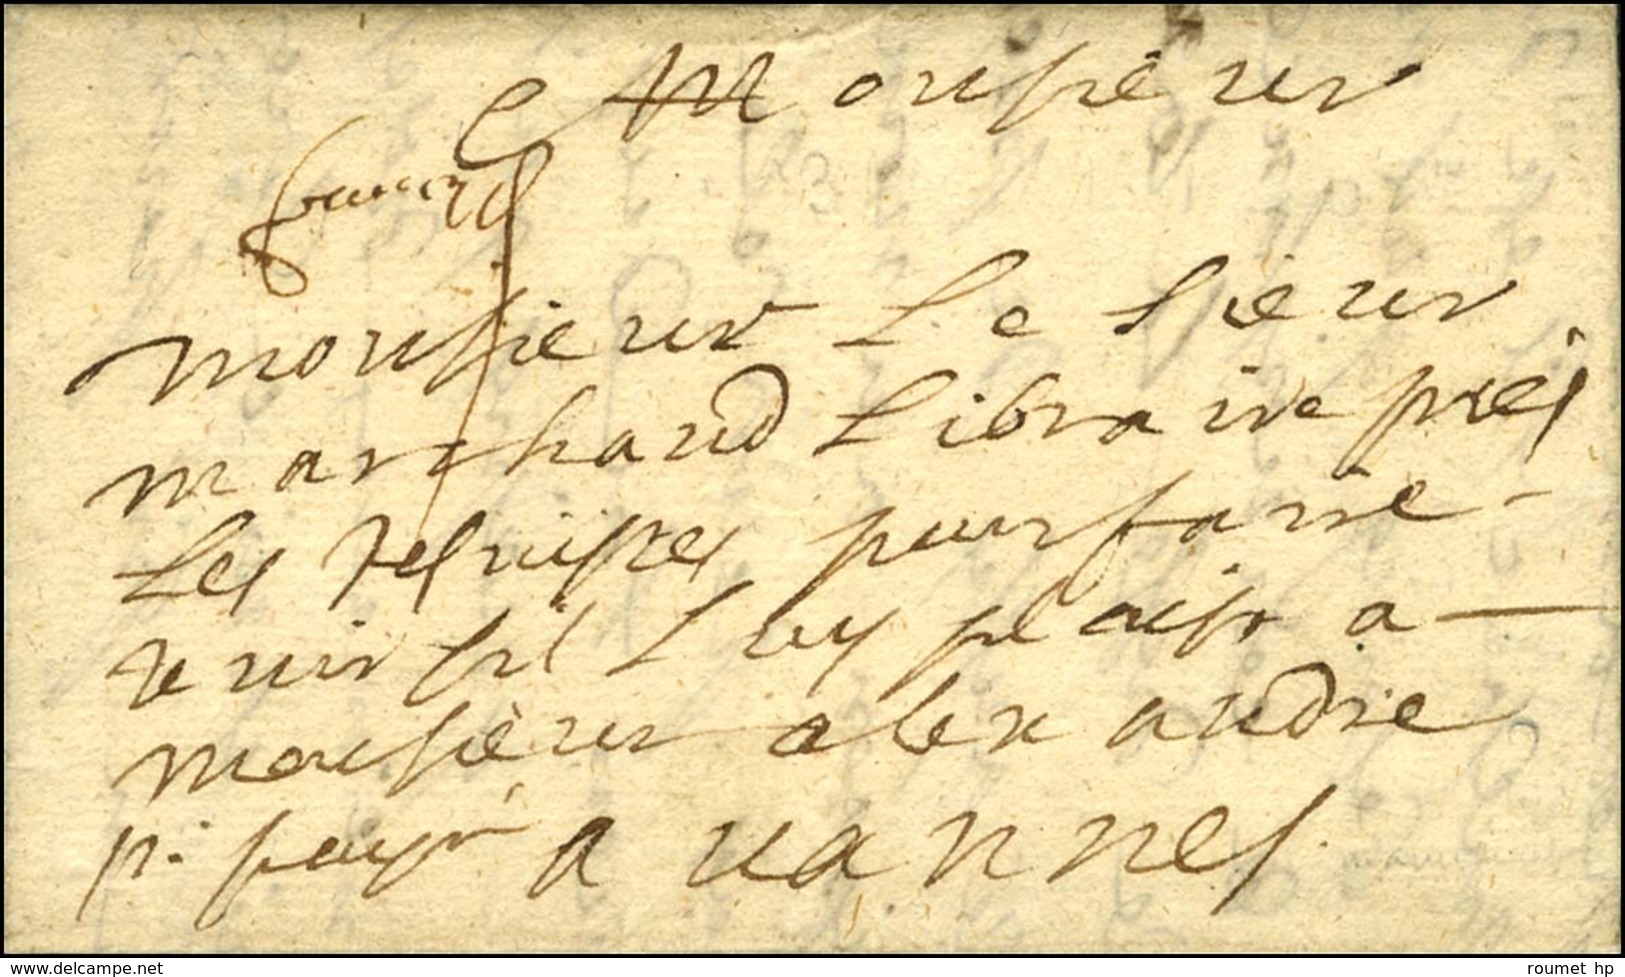 Monsieur
monsieur Le sieur
marchand Libraire pres
Les Jesuistes pour faire
tenir sil Luy plaist a
monsieur alexandre
p. payé a vannes
roumet hp